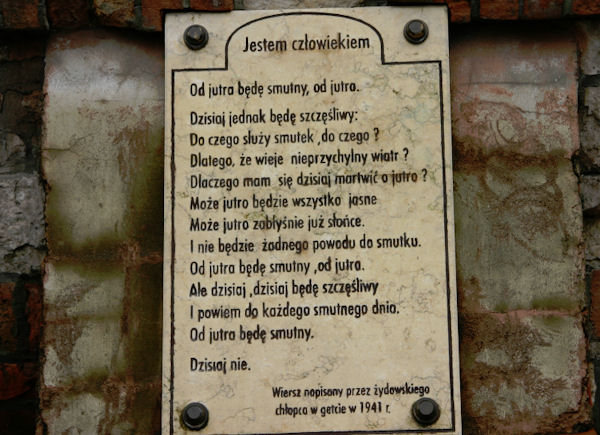 Jestem człowiekiem
Od jutra będę smutny, od jutra.
Dzisiaj jednak będę szczęśliwy:
Do czego służy smutek ,do czego ?
Dlatego, że wieje nieprzychylny wiatr ?
Dlaczego mam się dzisiaj martwić o jutro ?
Może jutro będzie wszystko jasne
Może jutro zabłyśnie już słońce.
I nie będzie żadnego powodu do smutku.
Od jutra będę smutny ,od jutra.
Ale dzisiaj ,dzisiaj będę szczęśliwy
I powiem do każdego smutnego dnia.
Od jutra będę smutny.
Dzisiaj nie.
Wiersz napisany przez żydowskiego
chłopca w getcie w 1941 r.